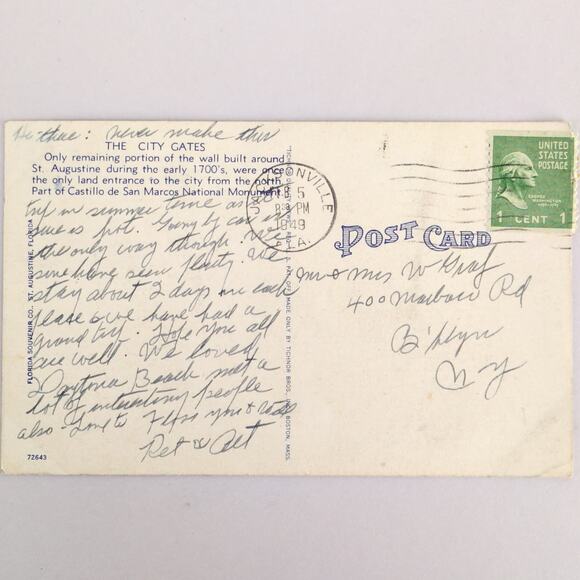 Hi thae: Never make this
THE CITY GATES
Only remaining portion of the wall built around
St. Augustine during the early 1700's, were once
the only land entrance to the city from the north.
Part of Castillo de San Marcos National Monument.
trip in summer time as
it is hot. Going by car is
the only way though. We
sure have seen plenty. We
stay about 2 days in each
place & we have had a
grand trip. Hope you all
are well. We loved
Daytona Beach met a
lot of interesting people
also. Love to you &
Ret & Art
72643
FLORIDA SOUVENIR CO., ST. AUGUSTINE, FLORIDA
MADE ONLY BY TICHNOR BROS., INC., BOSTON, MASS.
JACKSONVILLE
5
8 30 PM
1949
FLA.
UNITED
STATES
POSTAGE
GEORGE
WASHINGTON
1 CENT 1
POST CARD
Mr & Mrs W Graf
400 Rd
B'klyn
N Y